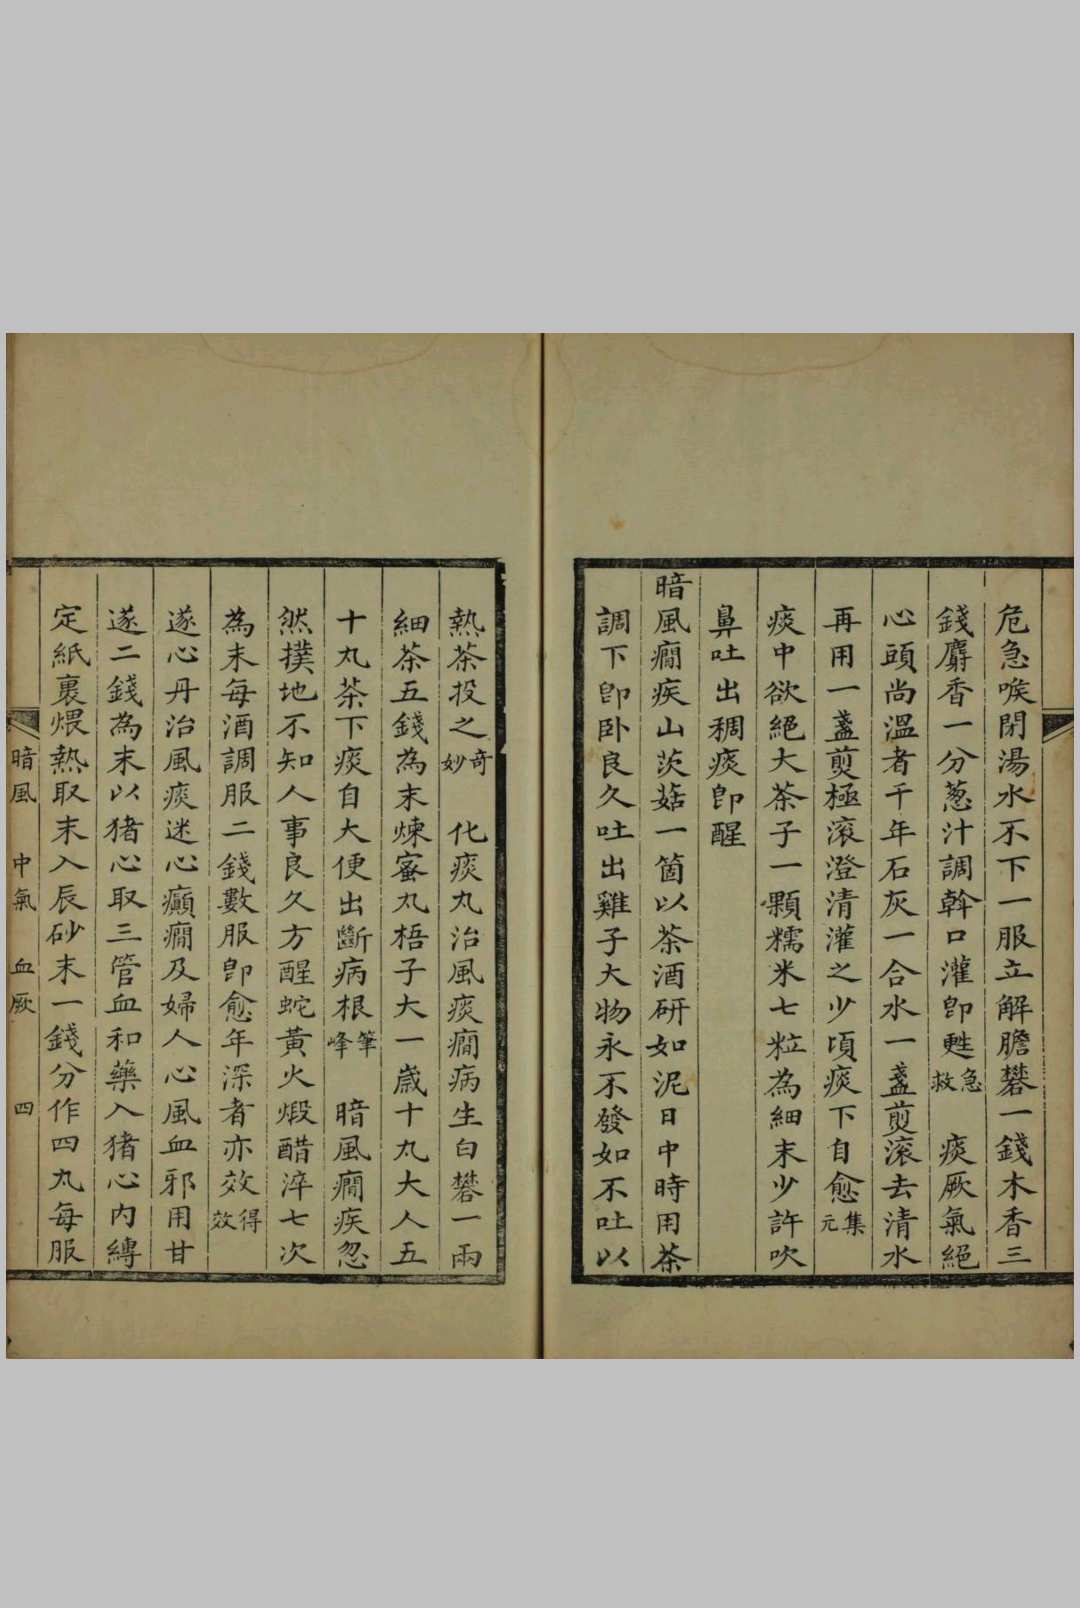 危急喉閉湯水不下一服立解膽礬一錢木香三
錢麝香一分葱汁調幹口灌卽甦急救 痰厥氣絕
心頭尚溫者千年石灰一合水一盞煎滾去清水
再用一盞煎極滾澄清灌之少頃痰下自愈集元
痰中欲絕大茶子一顆糯米七粒為細末少許吹
鼻吐出稠痰卽醒
暗風癇疾山茨菇一箇以茶酒研如泥日中時用茶
調下卽卧良久吐出雞子大物永不發如不吐以
熱茶投之奇妙 化痰丸治風痰癇病生白礬一兩
細茶五錢為末煉蜜丸梧子大一歲十丸大人五
十丸茶下痰自大便出斷病根筆峰 暗風癇疾忽
然撲地不知人事良久方醒蛇黃火煅醋淬七次
為末每酒調服二錢數服卽愈年深者亦效得效
遂心丹治風痰迷心癲癇及婦人心風血邪用甘
遂二錢為末以猪心取三管血和藥入猪心內縛
定紙裏煨熱取末入辰砂末一錢分作四丸每服
暗風 中氣 血厥 四